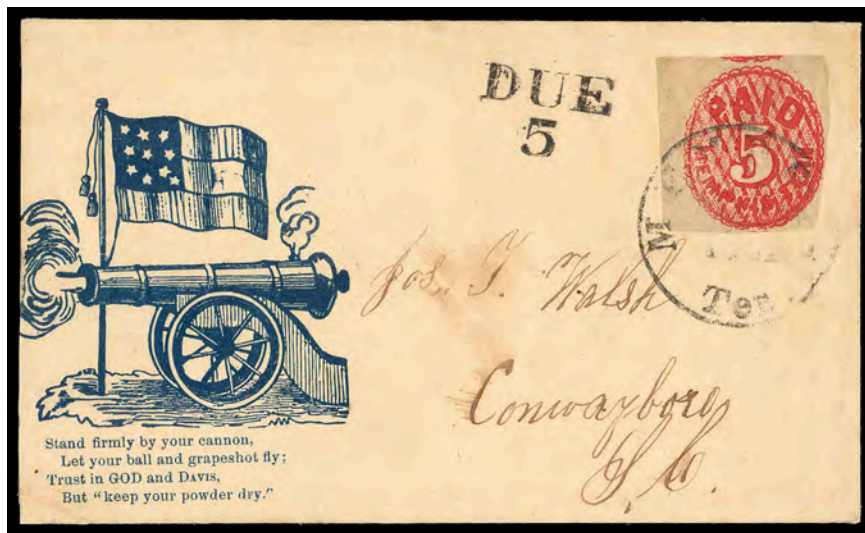 DUE
5
PAID
5
MEMPHIS
Ten
Jos. T. Walsh
Conwayboro
S. C.
Stand firmly by your cannon,
Let your ball and grapeshot fly;
Trust in GOD and DAVIS,
But “keep your powder dry.”